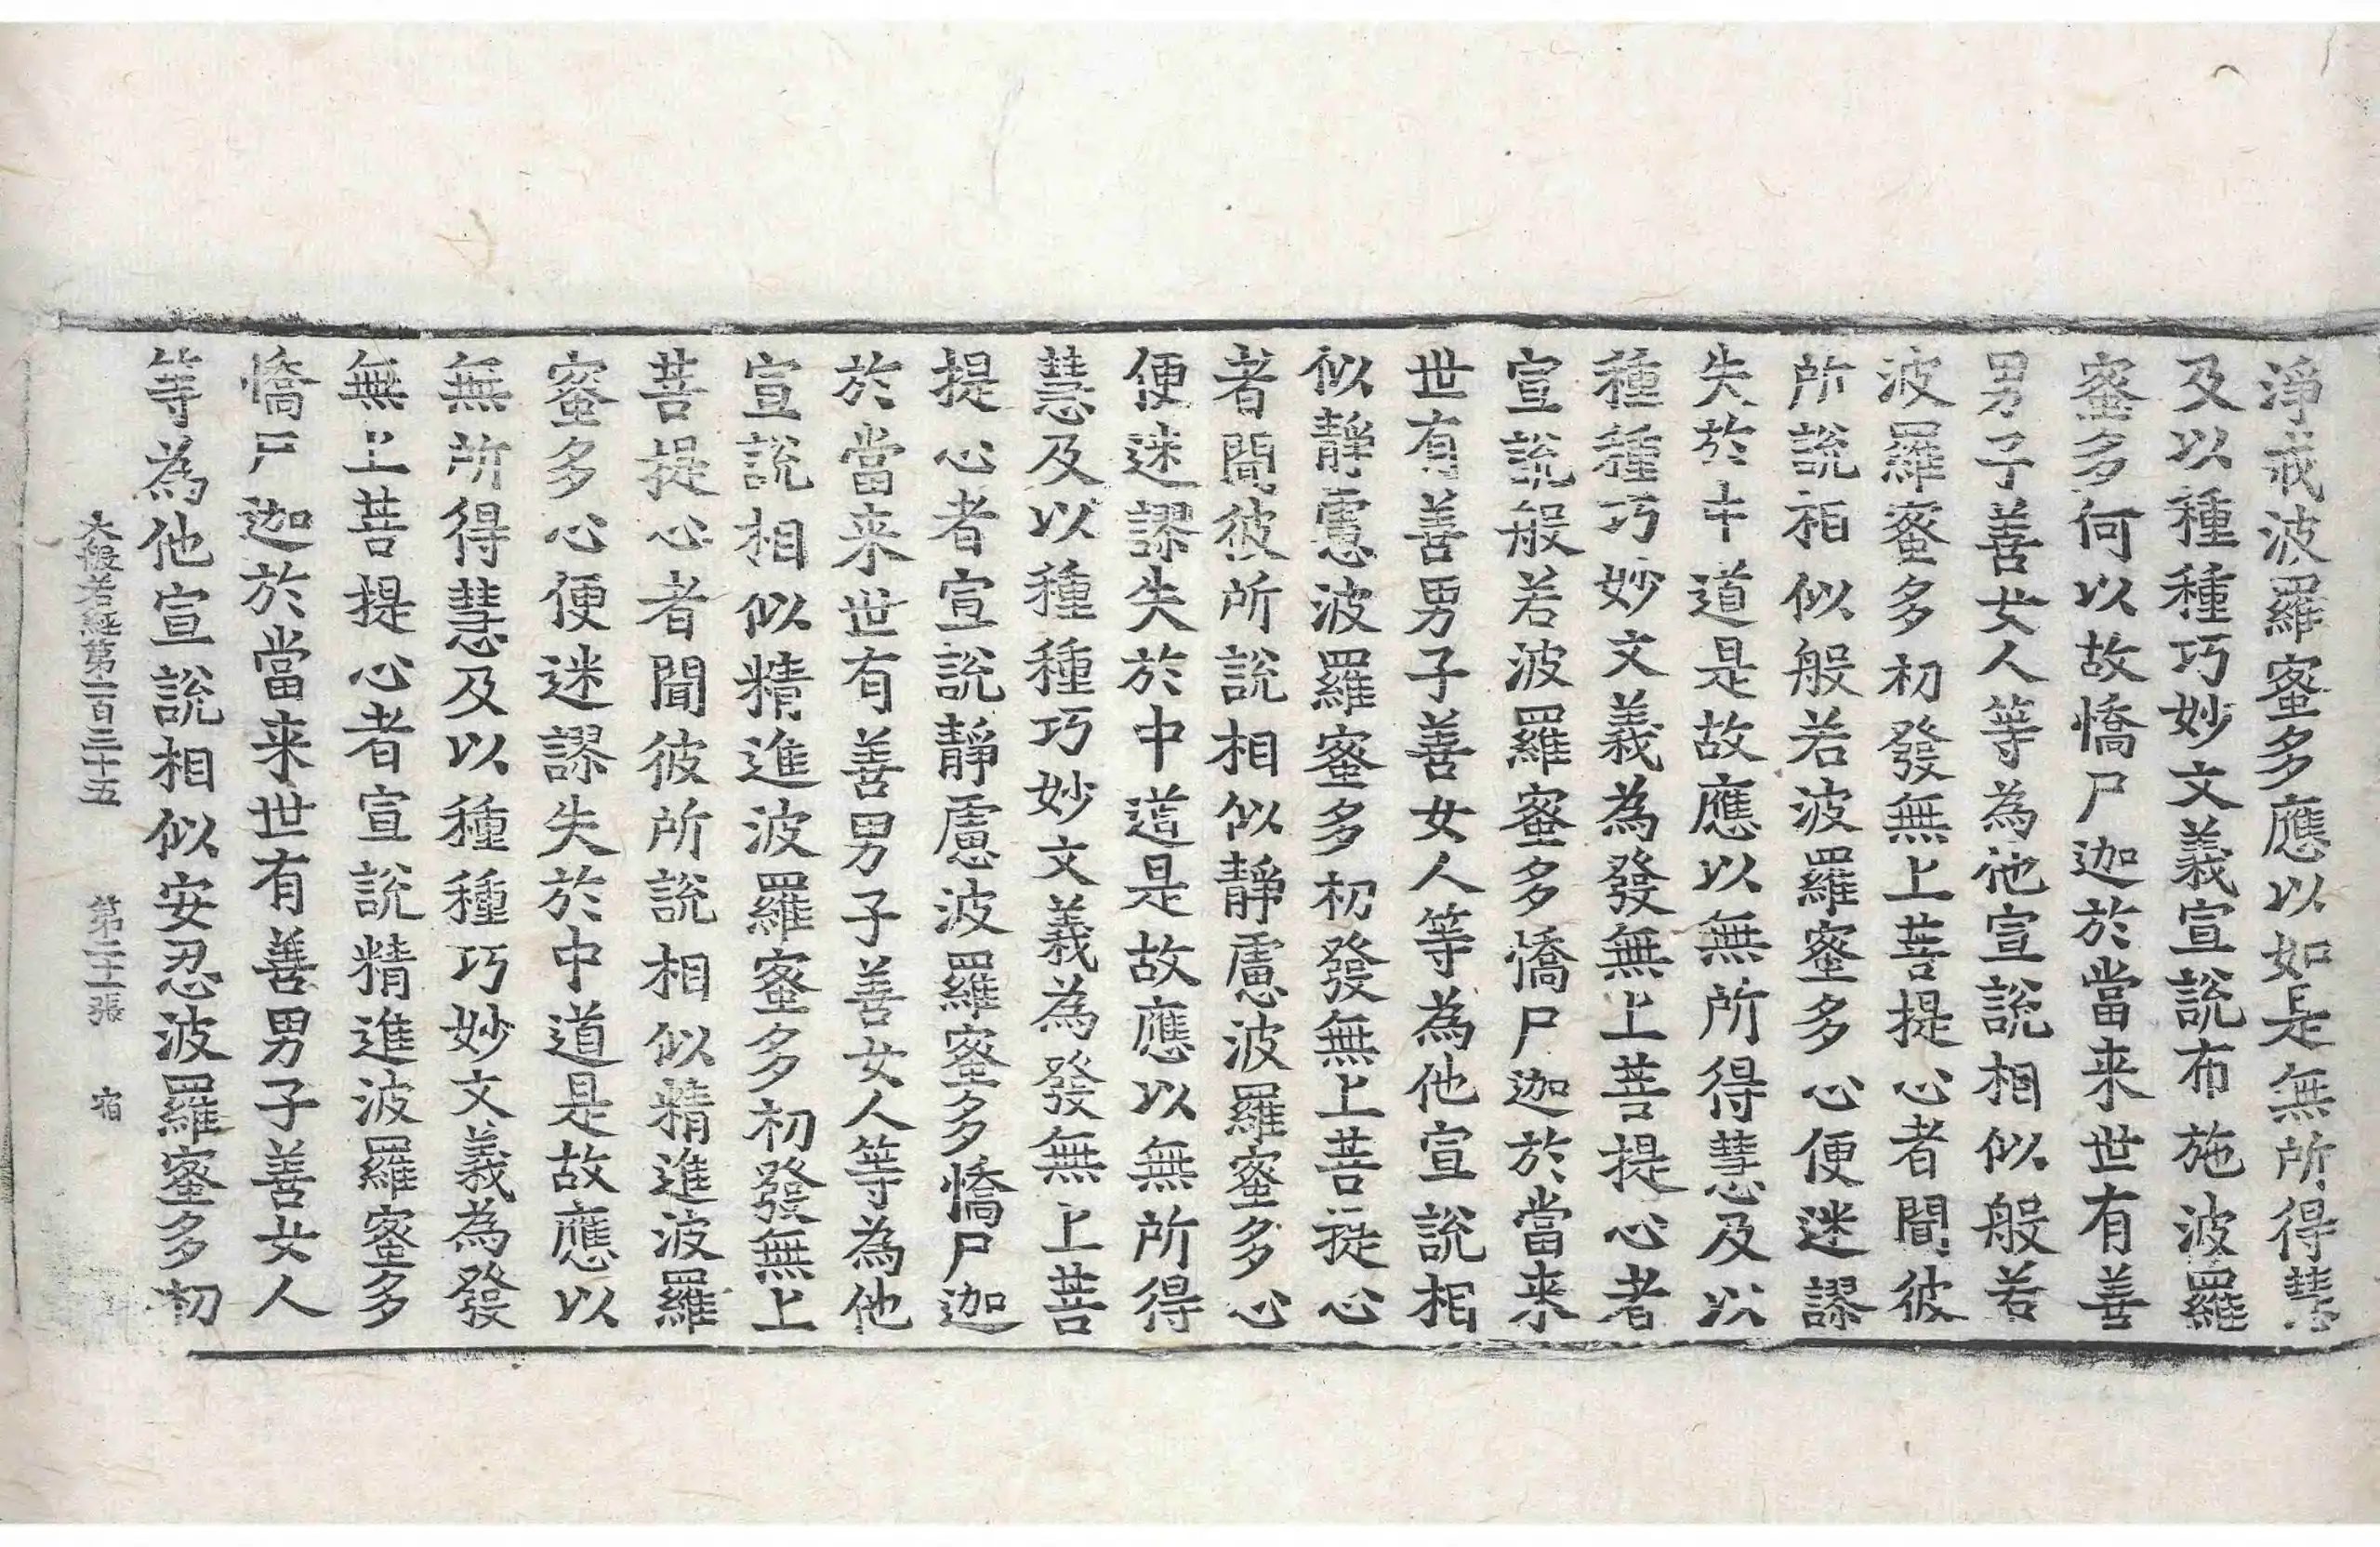 淨戒波羅蜜多應以如是無所得慧
及以種種巧妙文義宣說布施波羅
蜜多何以故憍尸迦於當来世有善
男子善女人等為他宣說相似般若
波羅蜜多初發無上菩提心者聞彼
所說相似般若波羅蜜多心便迷謬
失於中道是故應以無所得慧及以
種種巧妙文義為發無上菩提心者
宣說般若波羅蜜多憍尸迦於當来
世有善男子善女人等為他宣說相
似靜慮波羅蜜多初發無上菩提心
者聞彼所說相似靜慮波羅蜜多心
便迷謬失於中道是故應以無所得
慧及以種種巧妙文義為發無上菩
提心者宣說靜慮波羅蜜多憍尸迦
於當来世有善男子善女人等為他
宣說相似精進波羅蜜多初發無上
菩提心者聞彼所說相似精進波羅
蜜多心便迷謬失於中道是故應以
無所得慧及以種種巧妙文義為發
無上菩提心者宣說精進波羅蜜多
憍尸迦於當来世有善男子善女人
等為他宣說相似安忍波羅蜜多初
大般若經第二百三十五 第二十二張 宿